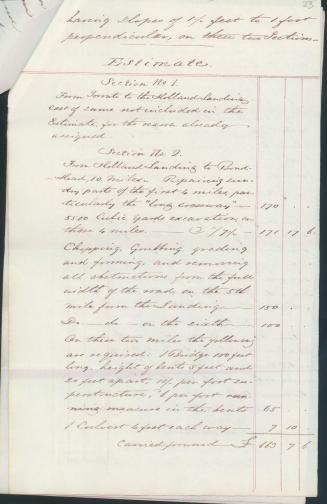 23
having slopes of 1½ feet to 1 foot
perpendicular, on these two Sections.
Estimate.
Section No 1.
From Toronto to the Holland Landing
cost of same not included in the
Estimate for the reason already
assigned.
Section No 2.
From Holland Landing to Bond-
Head, 10 Miles. Repairing sun-
dry parts of the first 4 miles par-
ticularly the "long crossway" — 170 .
5500 Cubic Yards excavation on
these 4 miles. — @ 7½ — 171 17 6
Chopping, Grubbing, grading
and forming, and removing
all obstructions from the full
width of the road, on the 5th
mile from the Landing — 150 .
Do — do — on the sixth — 100
On these two miles the following
are required: 1 Bridge 100 feet
long, height of bents 5 feet and
20 feet apart, 10/ per foot su-
perstructure, per foot run-
ning measure in the bents 65
1 Culvert 4 feet each way — 7 10
Carried forward £ 663 7 6